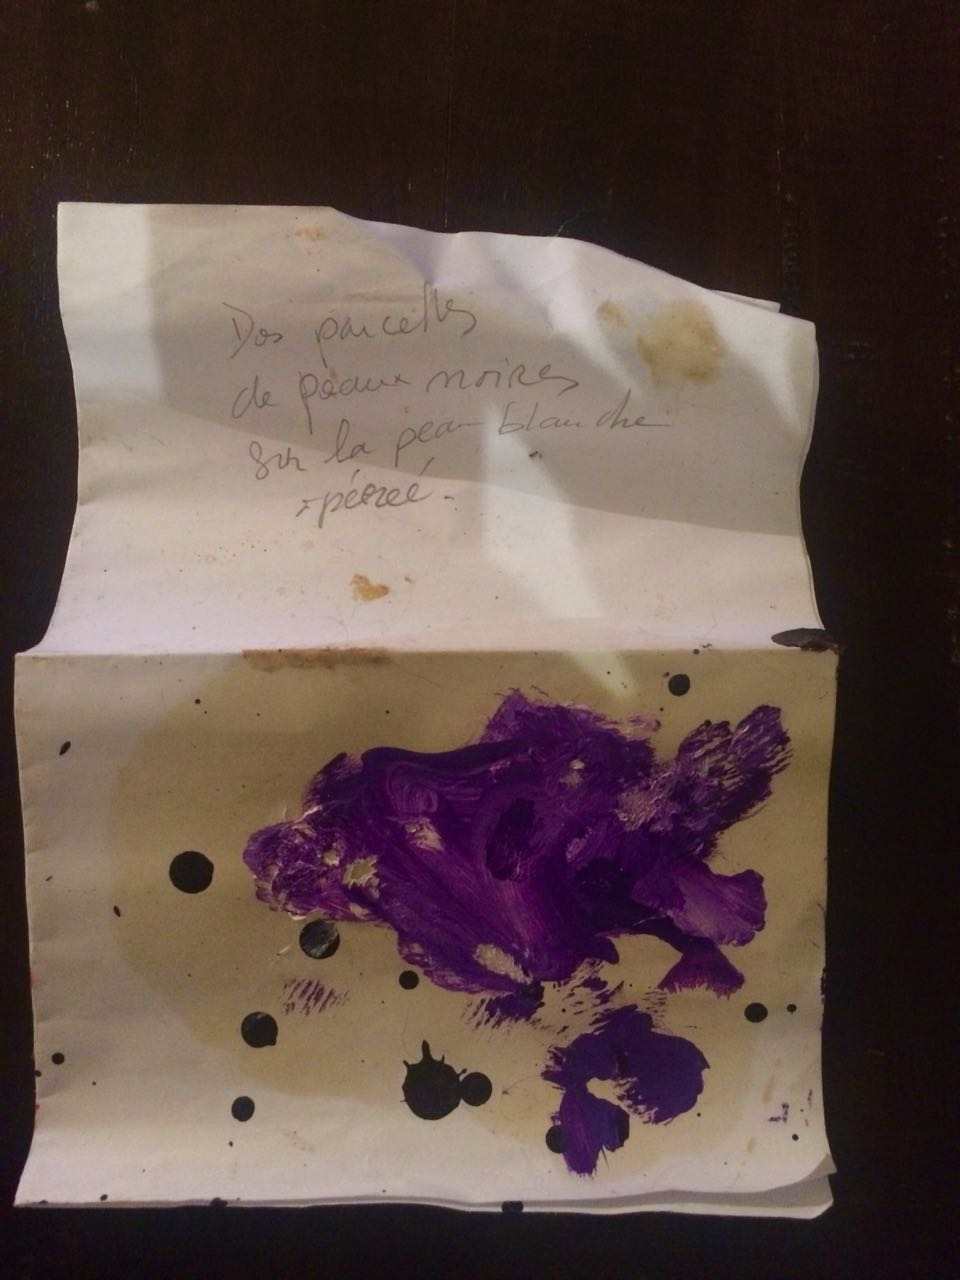 Des parcelles
de peaux noires
sur la peau blanche